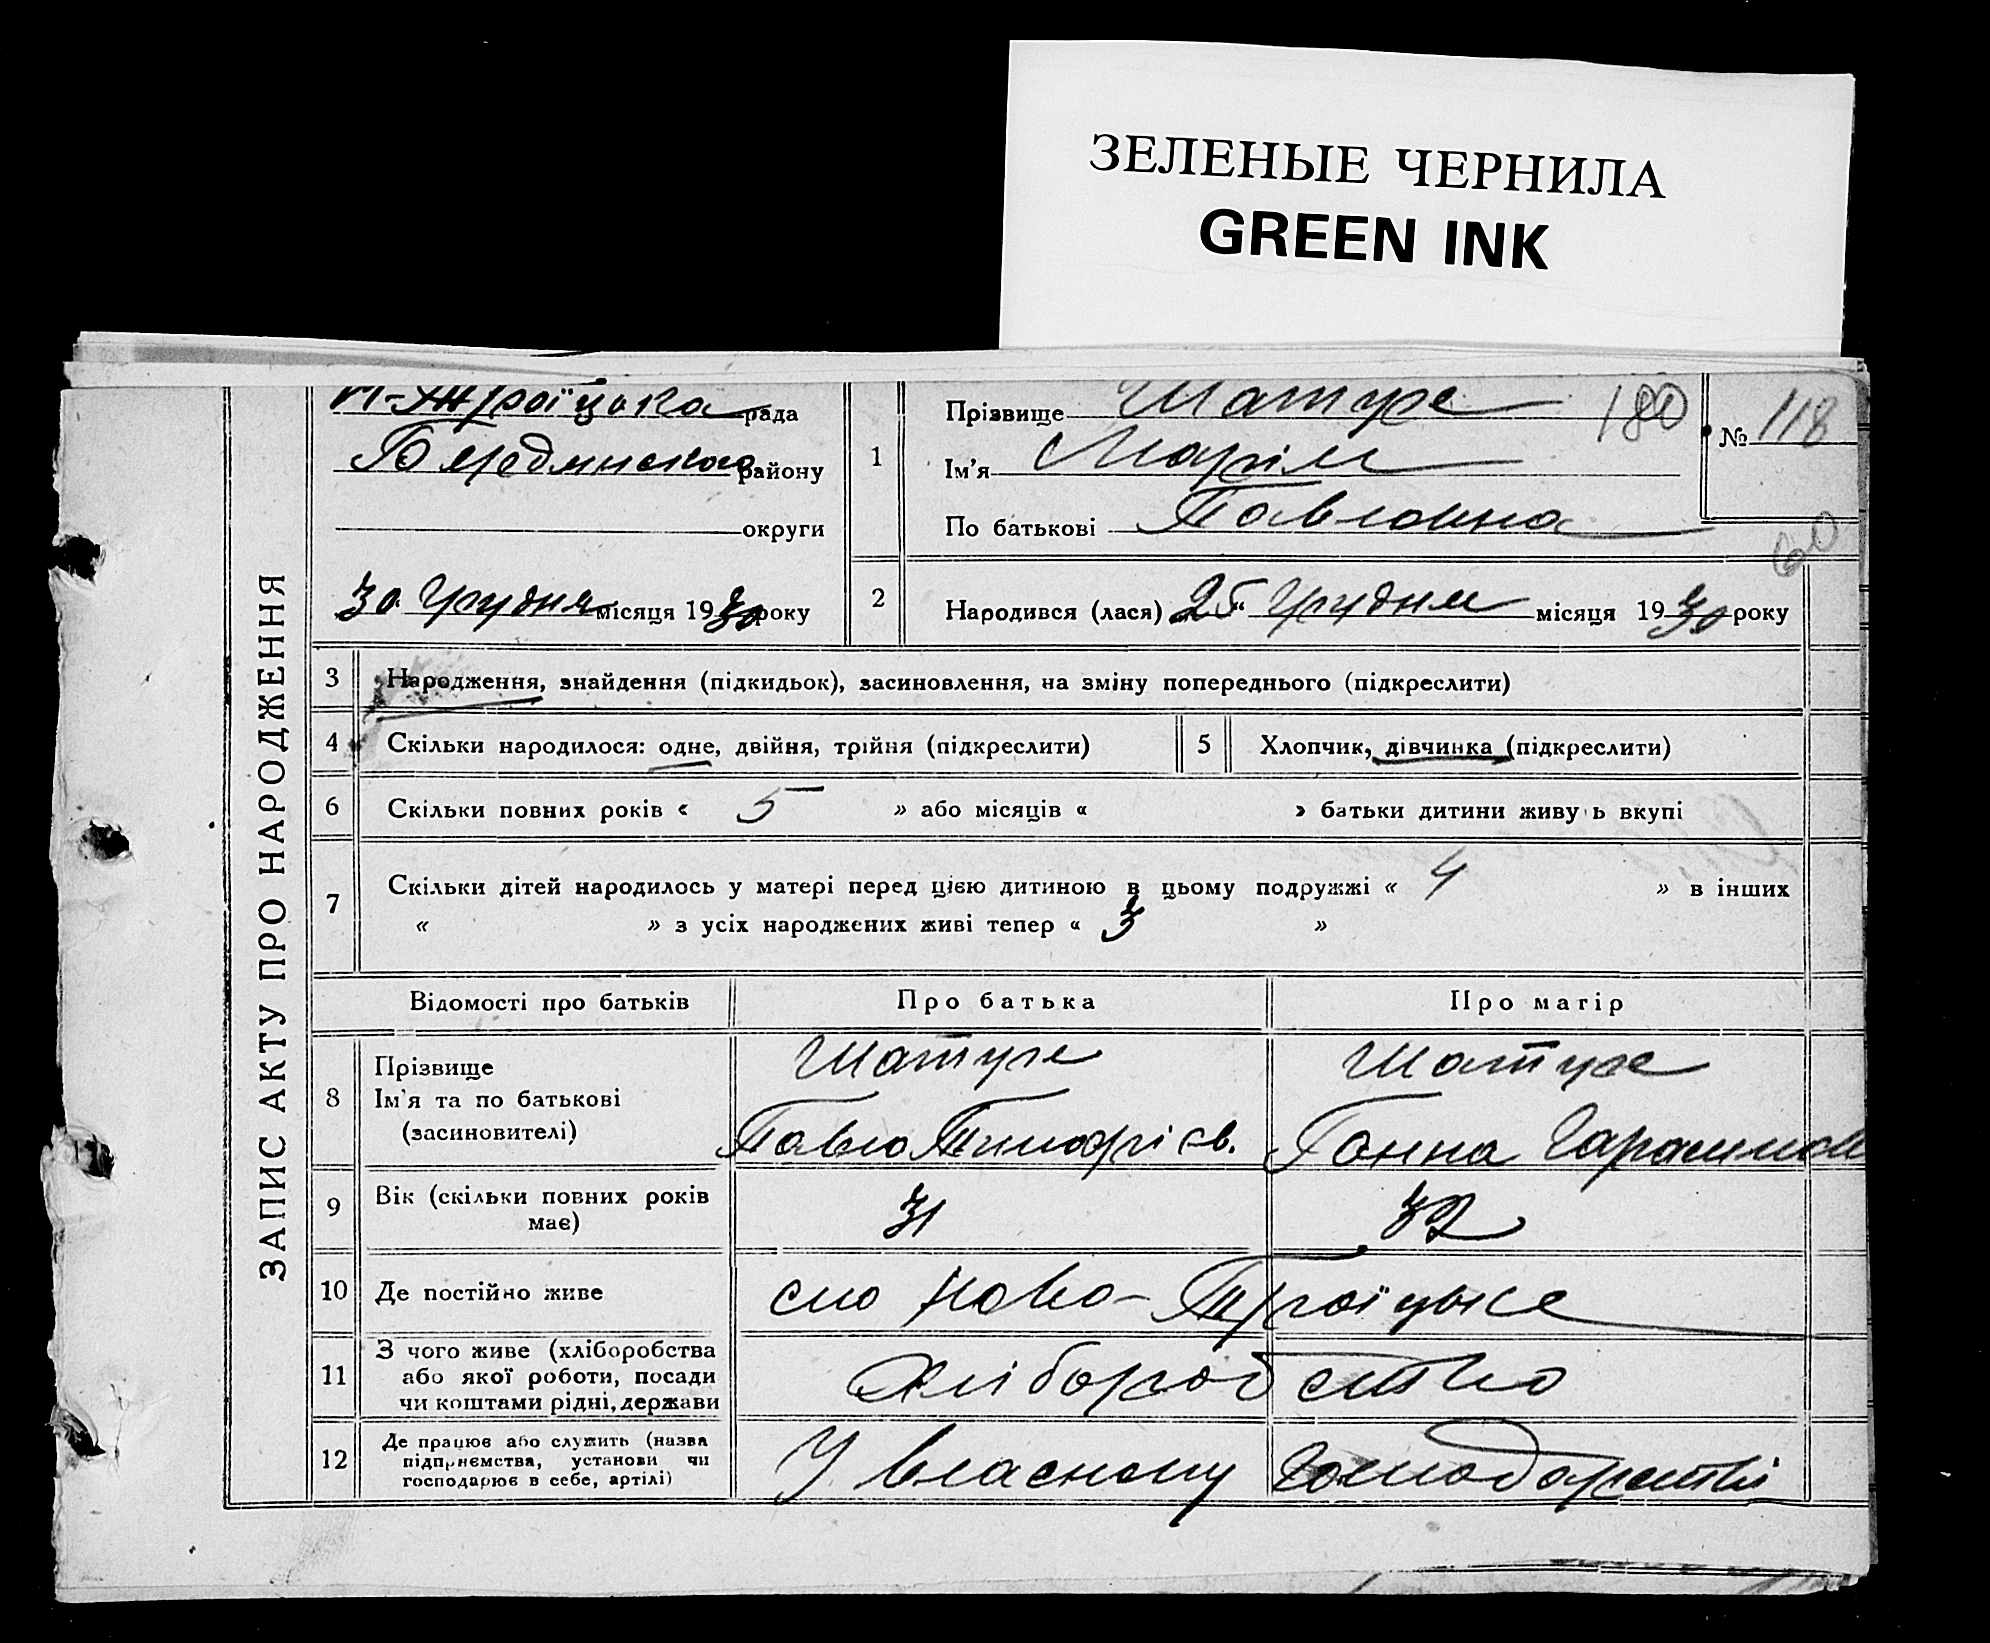 ЗЕЛЕНЫЕ ЧЕРНИЛА
GREEN INK
Н-Троїцька рада
Бердянсько району
округи
30 Грудня місяця 1930 року
ЗАПИС АКТУ ПРО НАРОДЖЕННЯ
1 Прізвище Шатуре 180
№ 118
Ім'я Марія
По батькові Павловна
60
2 Народився (лася) 25 Грудня місяця 1930 року
3 Народження, знайдення (підкидьок), засиновлення, на зміну попереднього (підкреслити)
4 Скільки народилося: одне, двійня, трійня (підкреслити)
5 Хлопчик, дівчинка (підкреслити)
6 Скільки повних років « 5 » або місяців « » батьки дитини живуь вкупі
7 Скільки дітей народилось у матері перед цією дитиною в цьому подружжі « 4 » в інших
« » з усіх народжених живі тепер « 3 »
Відомості про батьків Про батька Про матір
8 Прізвище
Ім'я та по батькові
(засиновителі)
Шатуре
Павло Тимофієв.
Шатуре
Ганна Гарасимов
9 Вік (скільки повних років
має)
31 32
10 Де постійно живе
сло Ново-Троїцьке
11 З чого живе (хліборобства
або якої роботи, посади
чи коштами рідні, держави
Хліборобство
12 Де працює або служить (назва
підприємства, установи чи
господарює в себе, артілі)
У власному Господарстві